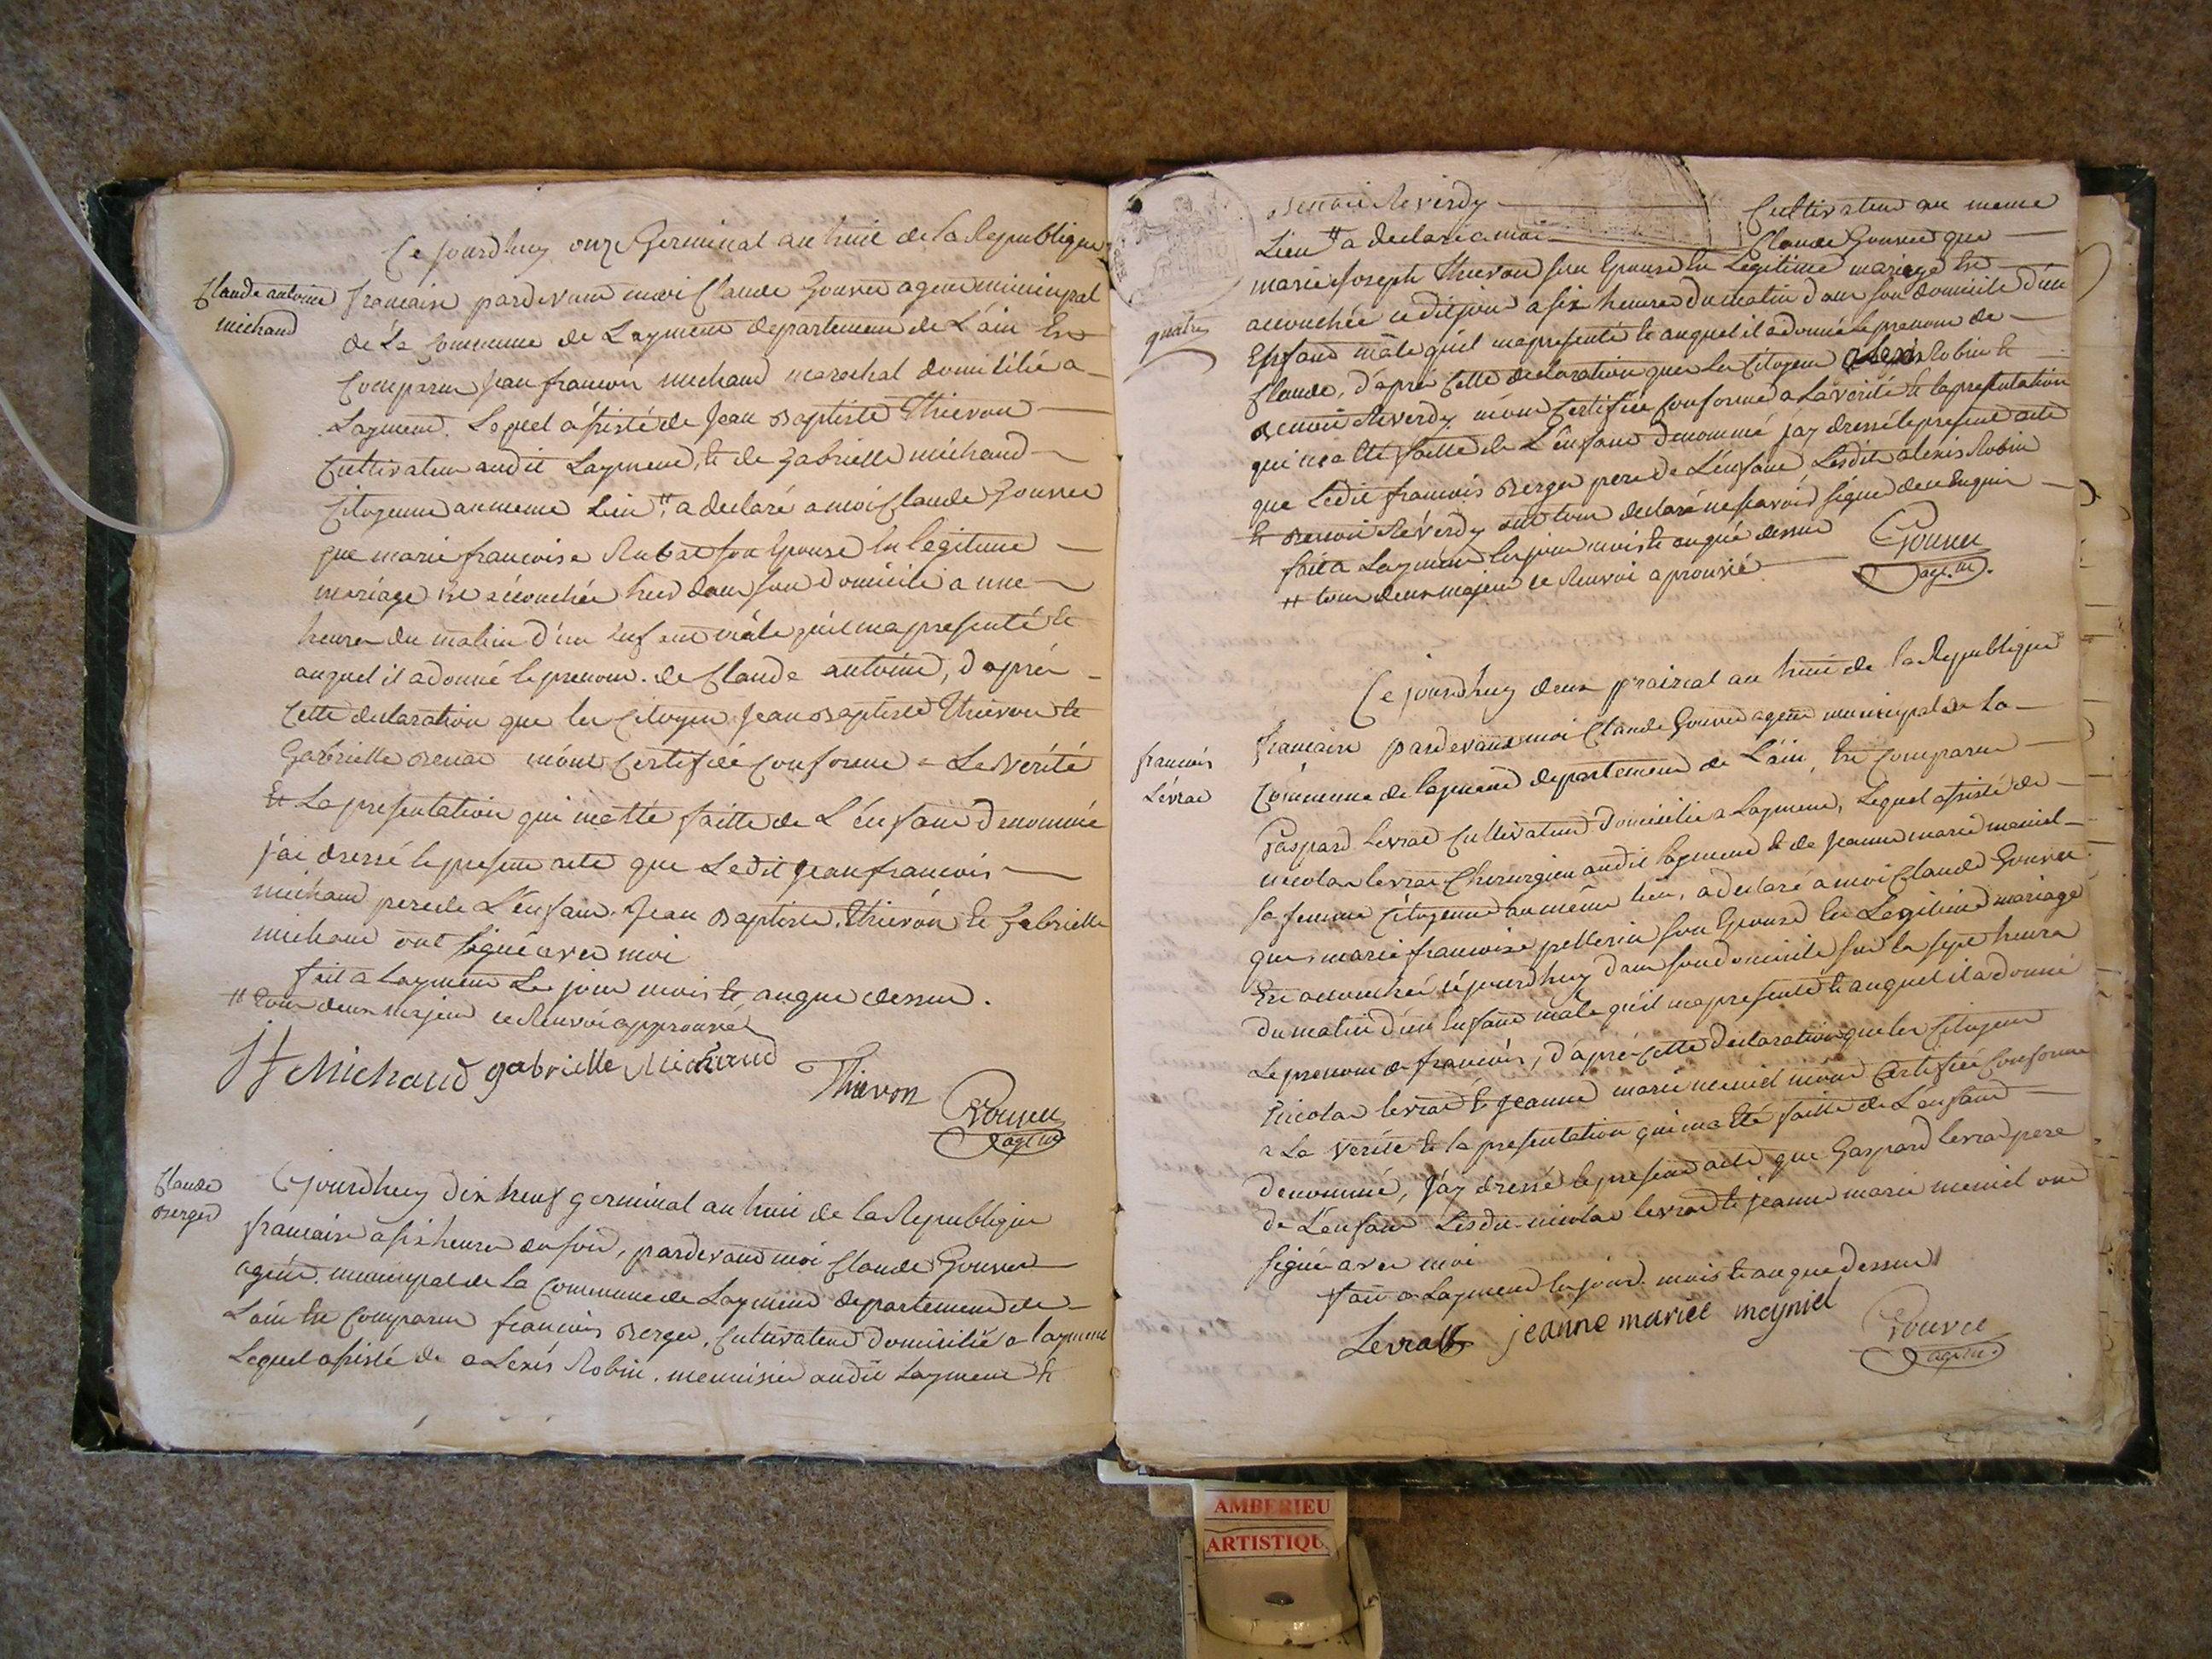 Ce jourdhuy onze Germinal an huit de la Republique
Claude antoine
michaud
francaise pardevant moi Claude Gouvee agent municipal
de la Commune de Layment departement de L'ain Est
Comparu Jean francois michaud marechal domicilié a
Layment. Lequel assisté de Jean Baptiste Thievon
Cultivateur audit Layment, et de Gabrielle michaud
Citoyenne au meme Lieu # a declaré a moi Claude Gouvee
que marie francoise Rubat son Epouse En legitime
mariage Est accouchée hier dans son domicile a une
heures du matin d'un Enfant mâle qu'il ma presenté et
auquel il a donné le prenom de Claude antoine, d'après
Cette declaration que les Citoyen Jean Baptiste Thievon et
Gabrielle m'ont Certifiée Conforme a La vérité
Et La presentation qui ma été faitte de L'énfant denommé
j'ai dressé le present acte que Ledit Jean francois
michaud pere de L'enfant. Jean Baptiste Thievon Et Gabrielle
michaud ont signé avec moi
fait a Layment Les jour mois et an que dessus.
# tous deux Majeur ce Renvoi approuvé
Jf Michaud gabrielle Michaud
Thievon
Gouvee
age. m.
Claude
Berger
Cejourdhuy dix neuf germinal an huit de la Republique
francaise a six heures du soir, pardevant moi Claude Gouvee
agent municipal de la Commune de Layment departement de
Lain Est Comparu francois Berger, Cultivateur domicilié a layment
Lequel assisté de aLexis Robin. menuisier audit Layment Et
Benoit Reverdy Cultivateur au meme
Lieu # a declaré a moi Claude Gouvee que
marie Joseph Thievon son Epouse En Legitime mariage Est
accouchée cedit jour a six heures du matin dans son domicile d'un
quatre
Enfant mâle qu'il ma presenté et auquel il a donné le prenom de
Claude, d'après Cette declaration que les Citoyen alexis Robin Et
Benoit Reverdy m'ont Certifiée Conforme a La verité Et la presentation
qui m'a été faitte de L'énfant denommé j'ay dressé le present acte
que Ledit francois Berger pere de L'énfant Lesdits alexis Robin
Et Benoit Réverdy ont tous declaré ne scavoir signé de ce Enquis
fait a Layment les jour mois et an qué dessus
# tous deux majeur ce Renvoi aprouvé
Gouvee
age. m.
Ce jourdhuy deux prairial an huit de la Republique
francois
Lévrat
francaise pardevant moi Claude Gouvee agent municipal de La
Commune de layment departement de L'ain, Est Comparu
Gaspard Levrat Cultivateur domicilié a Layment, Lequel assisté de
nicolas levrat Chirurgien audit layment Et de Jeanne marie meniel
sa femme Citoyenne au même lieu, a declaré a moi Claude Gouvee
que marie francoise pellerin son Epouse En Legitime mariage
Est accouchée cejourdhuy dans son domicile sur les sept heures
du matin d'un Enfant male qu'il ma presenté et auquel il a donné
Le prenom de francois, d'après Cette declaration que les Citoyens
Nicolas levrat Et Jeanne marie meniel m'ont Certifiée Conforme
a La verité Et la presentation qui ma été faitte de L'enfant
denommé, J'ay dressé le present acte que Gaspard levrat pere
de L'enfant Lesdit nicolas levrat Et jeanne marie meniel ont
signé avec moi
fait a Layment les jour mois et an que dessus
Levratt jeanne mariel meyniel
Gouvee
age. m.
AMBERIEU
ARTISTIQU